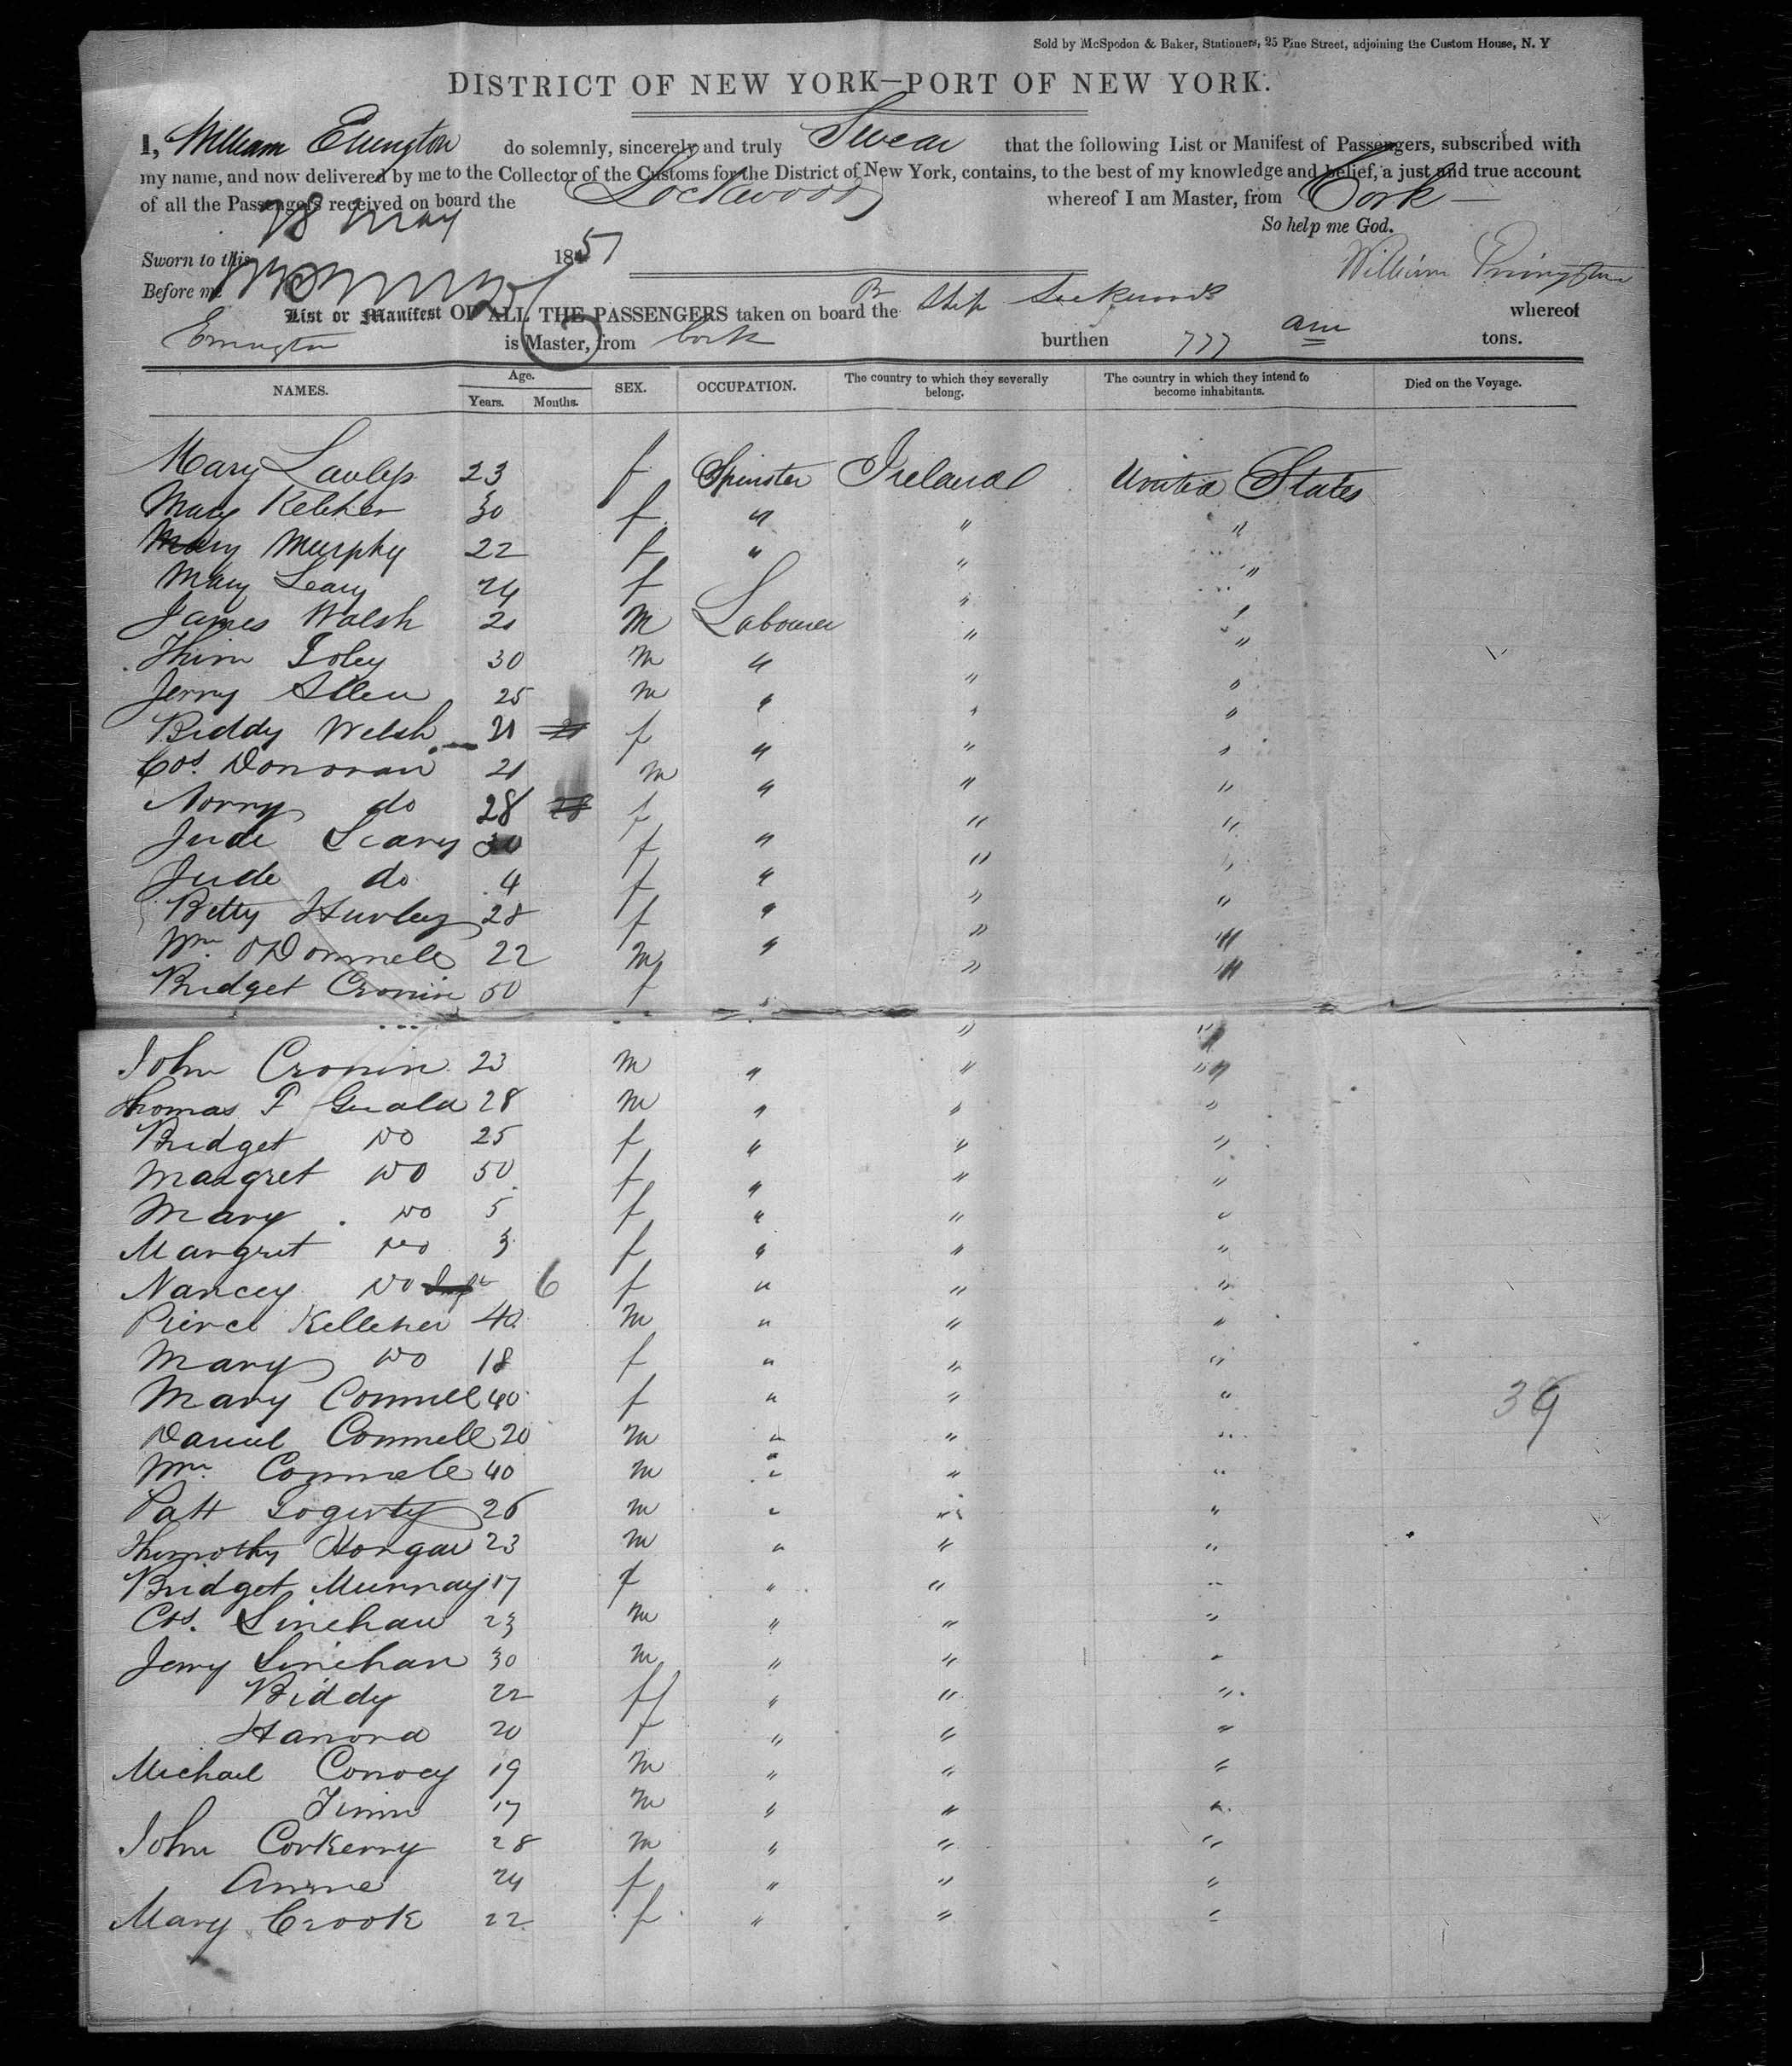 Sold by McSpedon & Baker, Stationers, 25 Pine Street, adjoining the Custom House, N. Y
DISTRICT OF NEW YORK—PORT OF NEW YORK.
I, William Errington do solemnly, sincerely and truly Swear that the following List or Manifest of Passengers, subscribed with
my name, and now delivered by me to the Collector of the Customs for the District of New York, contains, to the best of my knowledge and belief, a just and true account
of all the Passengers received on board the Lockwoods whereof I am Master, from Cork
So help me God.
Sworn to this 28 May 1851
William Errington
Before me
List or Manifest OF ALL THE PASSENGERS taken on board the Br Ship Lockwoods whereof
Errington is Master, from Cork burthen 777 tons.
NAMES. Age. Years. Months. SEX. OCCUPATION. The country to which they severally belong. The country in which they intend to become inhabitants. Died on the Voyage.
Mary Lawless 23 f Spinster Ireland United States
Mary Keleher 30 f " " "
Mary Murphy 22 f " " "
Mary Leary 24 f " "
James Walsh 21 m Labourer " "
Thim Foley 30 m " " "
Jerry Allen 25 m " " "
Biddy Welsh 21 f " " "
Cos. Donovan 21 m " " "
Norry do 28 f " "
Jude Leary 30 f " " "
Jude do 4 f " " "
Betty Hurley 28 f " " "
Wm. O'Donnell 22 m " " "
Bridget Cronin 50 f " "
John Cronin 23 m " " "
Thomas F Gerald 28 m " " "
Bridget Do 25 f " " "
Margret Do 50 f " " "
Mary Do 5 f " " "
Margret Do 3 f " " "
Nancey Do 6 f " " "
Pierce Kelleher 40 m " " "
Mary Do 18 f " " "
Mary Connell 40 f " " "
39
Daniel Connell 20 m " " "
Wm. Connell 40 m " " "
Patt Fogerty 26 m " " "
Thimothy Horgan 23 m " " "
Bridget Murray 17 f " " "
Cos. Linehan 23 m " " "
Jerry Linehan 30 m " " "
Biddy 22 f " " "
Hanora 20 f " " "
Michael Convey 19 m " " "
Timm 17 m " " "
John Corkerry 28 m " " "
Anne 24 f " " "
Mary Crook 22 f " " "